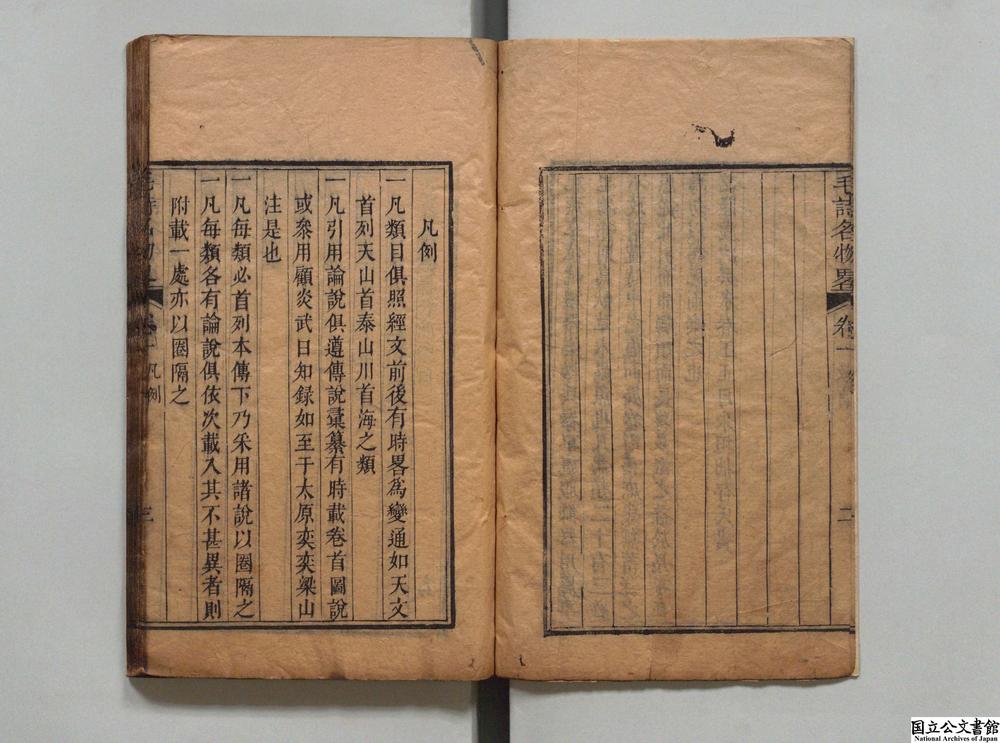 毛詩名物畧
卷一
二
凡例
一凡類目俱照經文前後有時畧爲變通如天文
首列天山首泰山川首海之類
一凡引用論說俱遵傳說彙纂有時載卷首圖說
或叅用顧炎武日知録如至于太原奕奕梁山
注是也
一凡每類必首列本傳下乃采用諸說以圈隔之
一凡每類各有論說俱依次載入其不甚異者則
附載一處亦以圈隔之
凡例
三
国立公文書館
National Archives of Japan